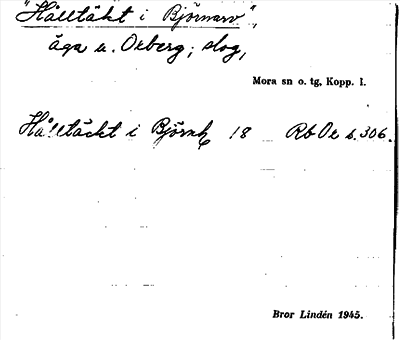 "Hålltäkt i Björnarv",
äga u. Oxberg; slog,
Mora sn o. tg, Kopp. l.
Hålltäckt i Björnh 18 Rb Oe s. 306.
Bror Lindén 1945.